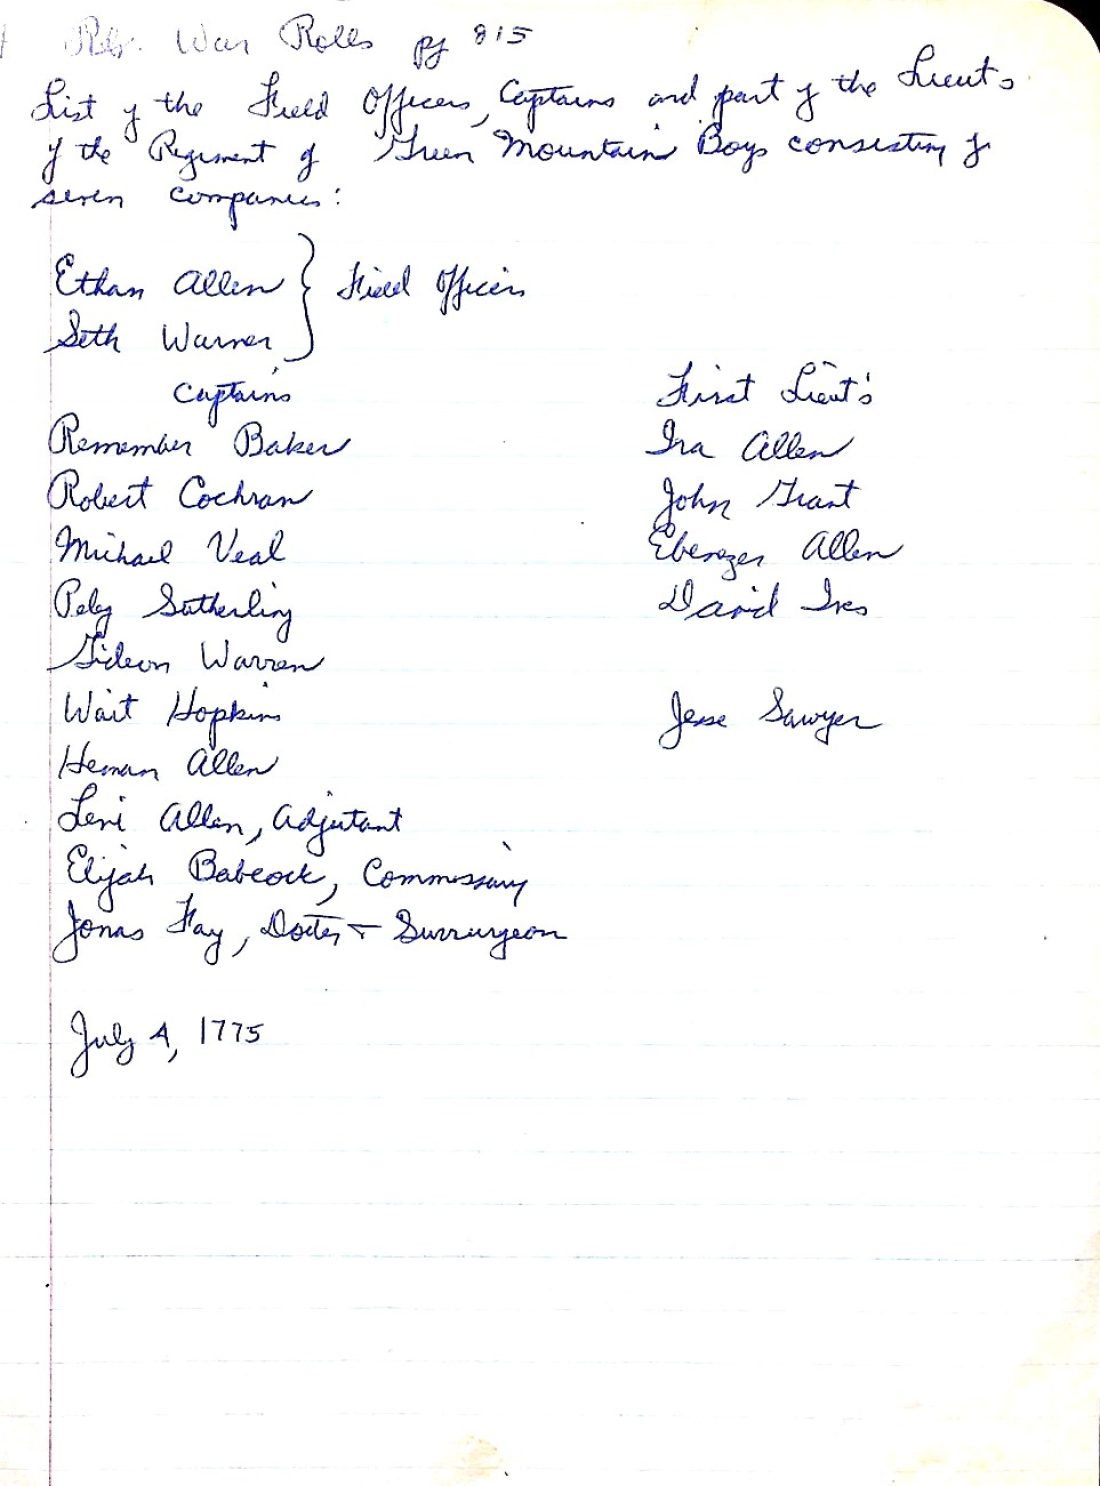 Rev. War Rolls pg 815
List of the Field Officers, Captains and part of the Lieuts
of the Regiment of Green Mountain Boys consisting of
seven companies:
Ethan Allen } Field Officers
Seth Warner
Captains First Lieut's
Remember Baker Ira Allen
Robert Cochran John Grant
Michael Veal Ebenezer Allen
Peleg Sutherling David Ives
Gideon Warren
Wait Hopkins Jesse Sawyer
Heman Allen
Levi Allen, Adjutant
Elijah Babcock, Commissary
Jonas Fay, Doctor + Surrurgeon
July 4, 1775